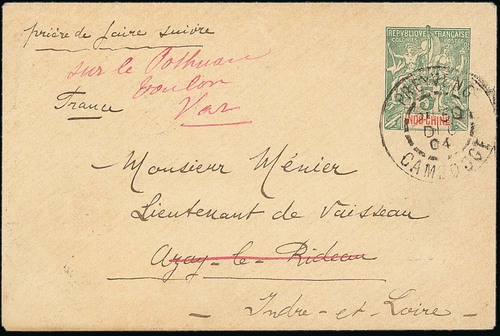 prière de faire suivre
sur le Pothuau
Toulon
Var
France
RÉPUBLIQUE FRANÇAISE
COLONIES POSTES
5
INDO-CHINE
CAMBODGE
04
Monsieur Ménier
Lieutenant de Vaisseau
Azay-le-Rideau
Indre-et-Loire